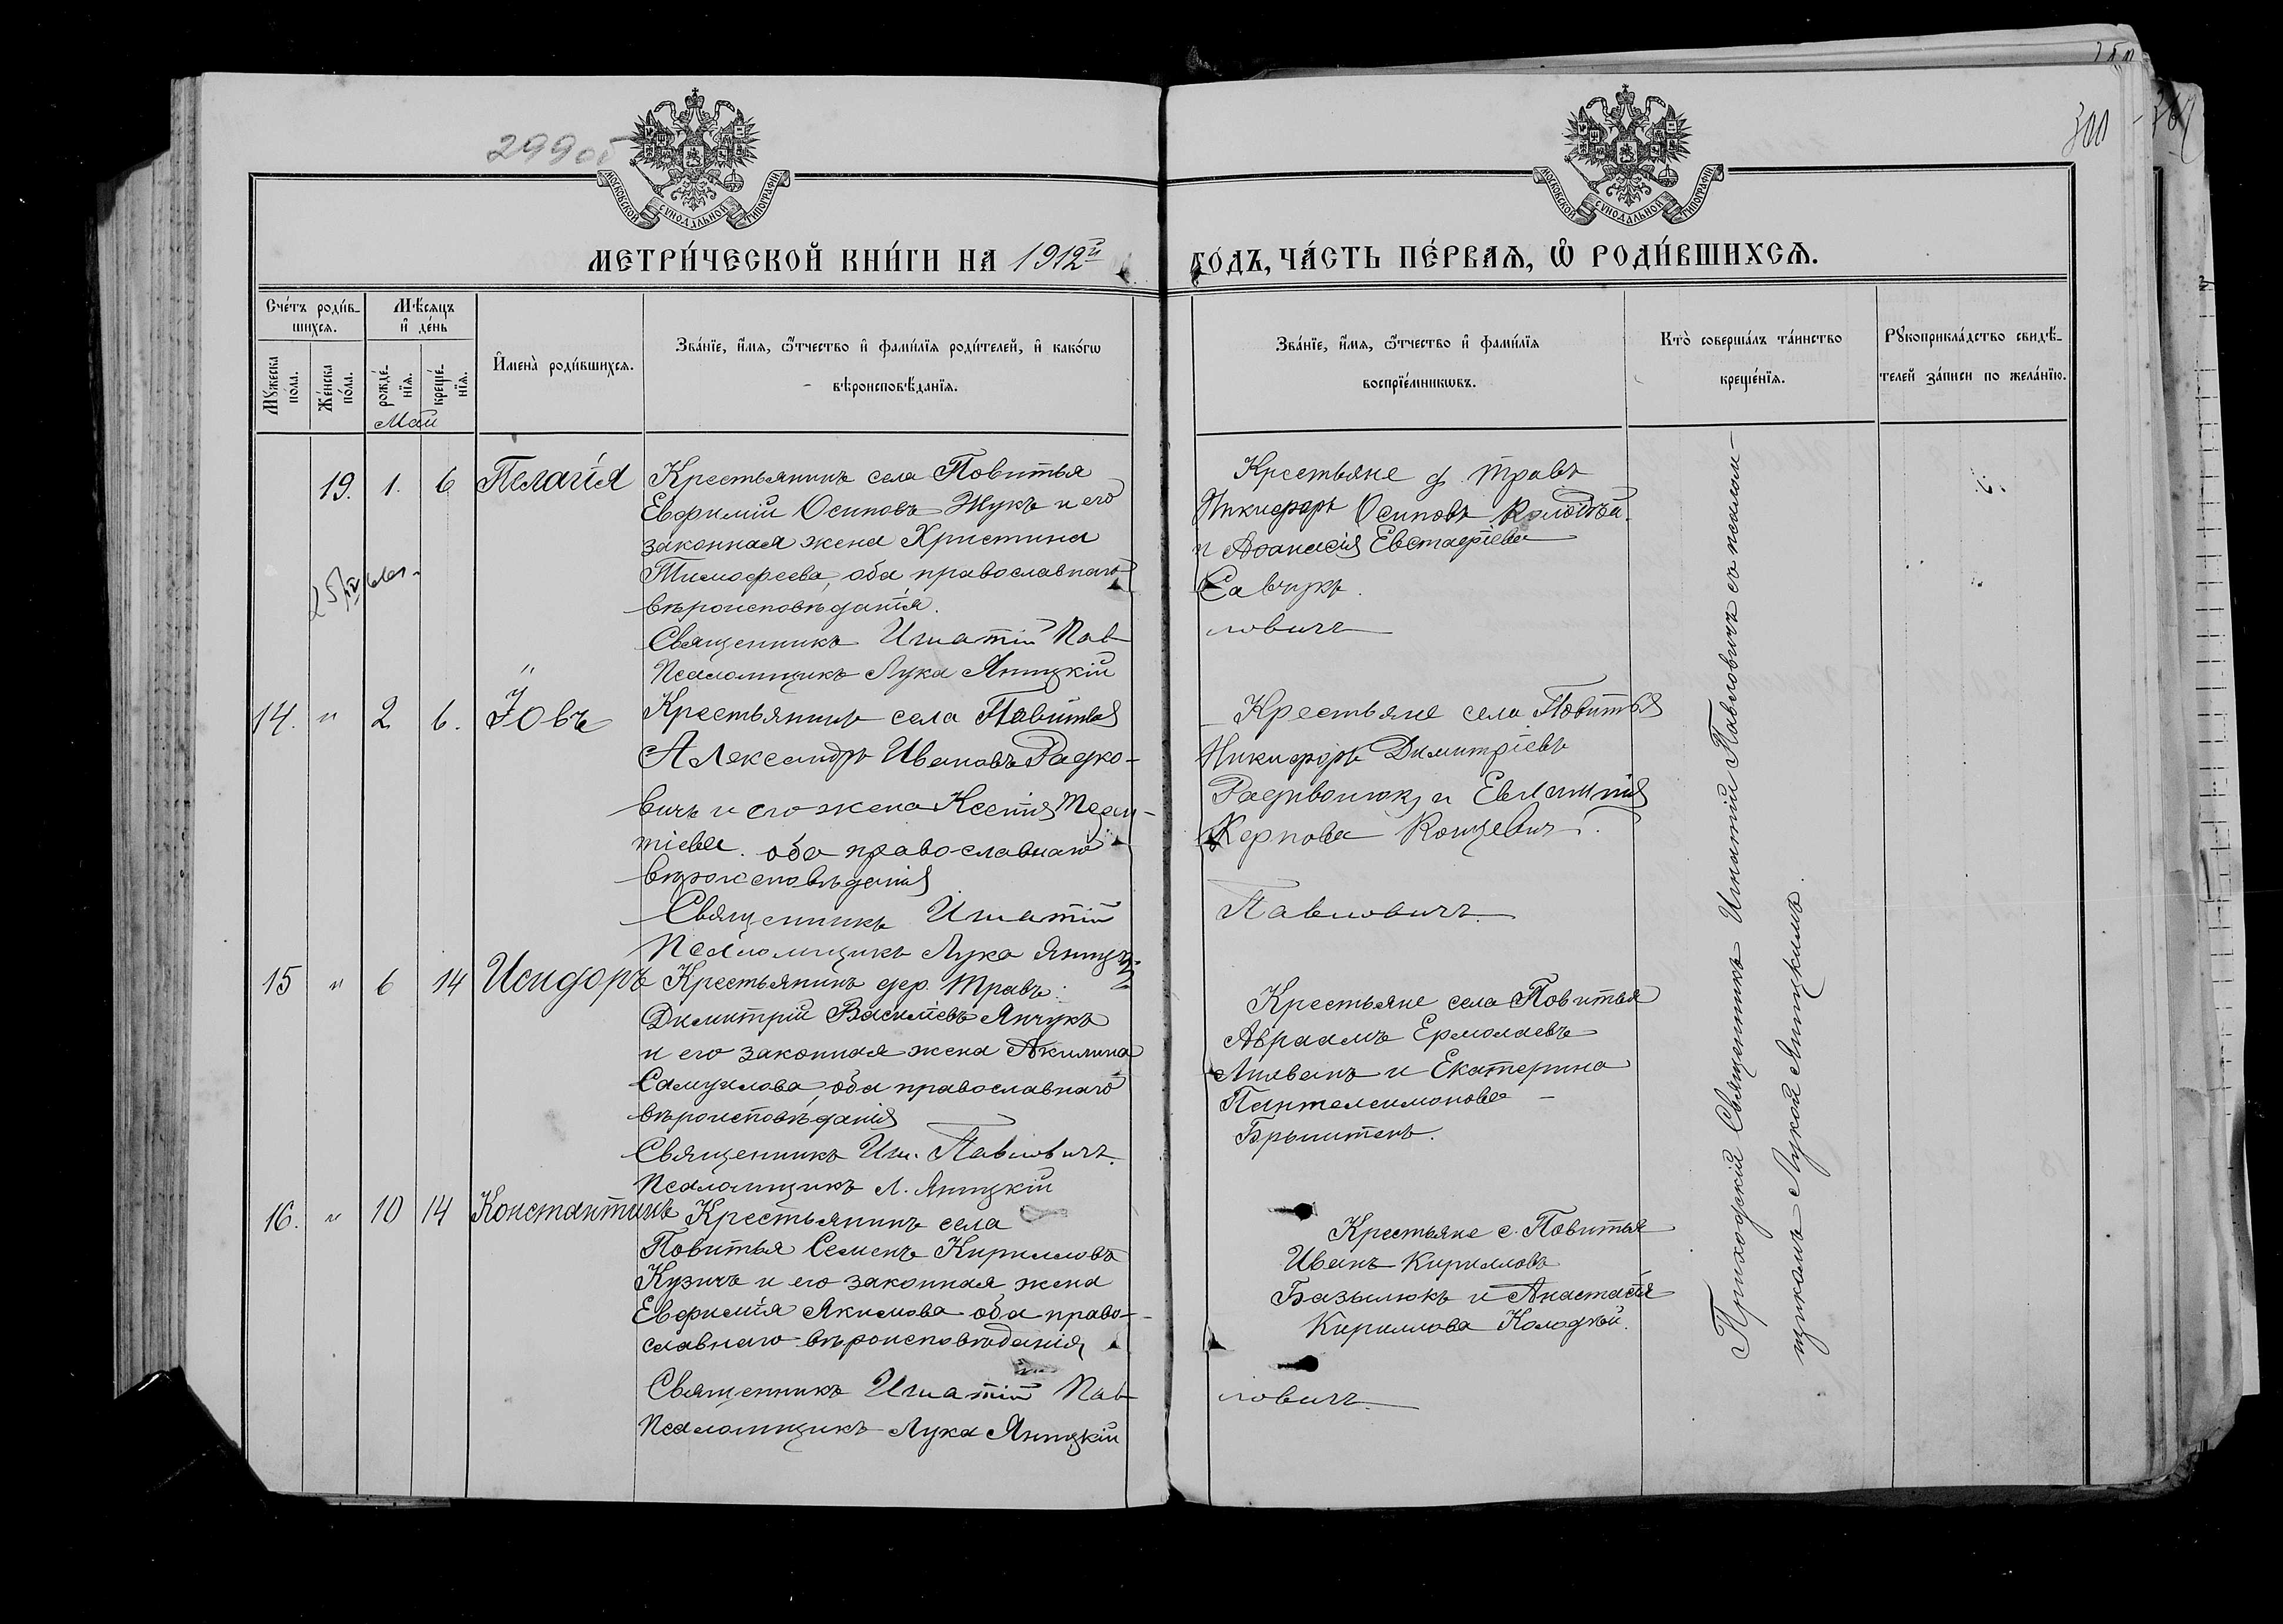 299об
300
МОСКОВСКОЙ СУНОДАЛЬНОЙ ТИПОГРАФІИ
МОСКОВСКОЙ СУНОДАЛЬНОЙ ТИПОГРАФІИ
МЕТРИ́ЧЕСКОЙ КНИ́ГИ НА 1912й
ГО́ДЪ, ЧА́СТЬ ПЕ́РВАѦ, Ѡ҆ РОДИ́ВШИХСѦ.
Сче́тъ роди́в-
шихсѧ.
Мꙋ́жеска по́ла.
Же́нска по́ла.
Мѣ́сѧцъ
и҆ де́нь
рожде́-нїѧ.
креще́-нїѧ.
И҆мена̀ роди́вшихсѧ.
Зва́нїе, и҆́мѧ, ѻ҆́тчество и҆ фами́лїѧ роди́телей, и҆ како́гѡ
вѣроисповѣ́данїѧ.
Зва́нїе, и҆́мѧ, ѻ҆́тчество и҆ фами́лїѧ
воспрїе́мникѡвъ.
Кто̀ соверша́лъ та́инство
креще́нїѧ.
Рꙋкоприкла́дство свидѣ́-
телей за́писи по жела́нїю.
Май
19. 1. 6 Пелагія
Крестьянинъ села Повитья
Евфимій Осиповъ Жукъ и его
законная жена Христина
Тимофеева, оба православнаго
вѣроисповѣданія.
Священникъ Игнатій Пав-
Псаломщикъ Лука Яницкій
Крестьяне д. Травъ
Никифоръ Осиповъ Колодѣй
и Аѳанасія Евстафіева
Савчукъ.
ловичъ
14. " 2 6. Іовъ
Крестьянинъ села Повитья
Александръ Ивановъ Радко-
вичъ и его жена Ксенія
тіева. оба православнаго
вѣроисповѣданія
Священникъ Игнатій
Псаломщикъ Лука Яницкій
Крестьяне села Повитья
Никифоръ Димитріевъ
Радивонюкъ и Евлампія
Карпова Концевич.
Павловичъ.
15 " 6 14 Исидоръ
Крестьянинъ дер. Травъ
Димитрій Василіевъ Янчукъ
и его законная жена Акилина
Самуилова, оба православнаго
вѣроисповѣданія
Священникъ Игн. Павловичъ.
Псаломщикъ Л. Яницкій
Крестьяне села Повитья
Авраамъ Ермолаевъ
и Екатерина
Пантелеимонова
16. " 10 14 Константинъ
Крестьянинъ села
Повитья Семенъ Кирилловъ
Кузичъ и его законная жена
Евфимія Якимова оба право-
славнаго вѣроисповѣданія
Священникъ Игнатій Пав-
Псаломщикъ Лука Яницкій
Крестьяне с. Повитья
Иванъ Кирилловъ
Базылюкъ и Анастасія
Кириллова Колодѣй.
ловичъ.
Приходскій Священникъ Игнатій Павловичъ съ псалом-
щикомъ Лукой Яницкимъ.